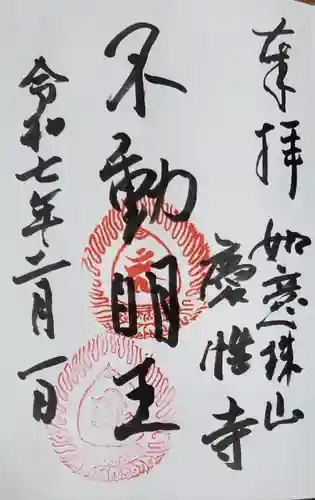 奉拝
如意珠山
慶惟寺
不動明王
令和七年二月一日